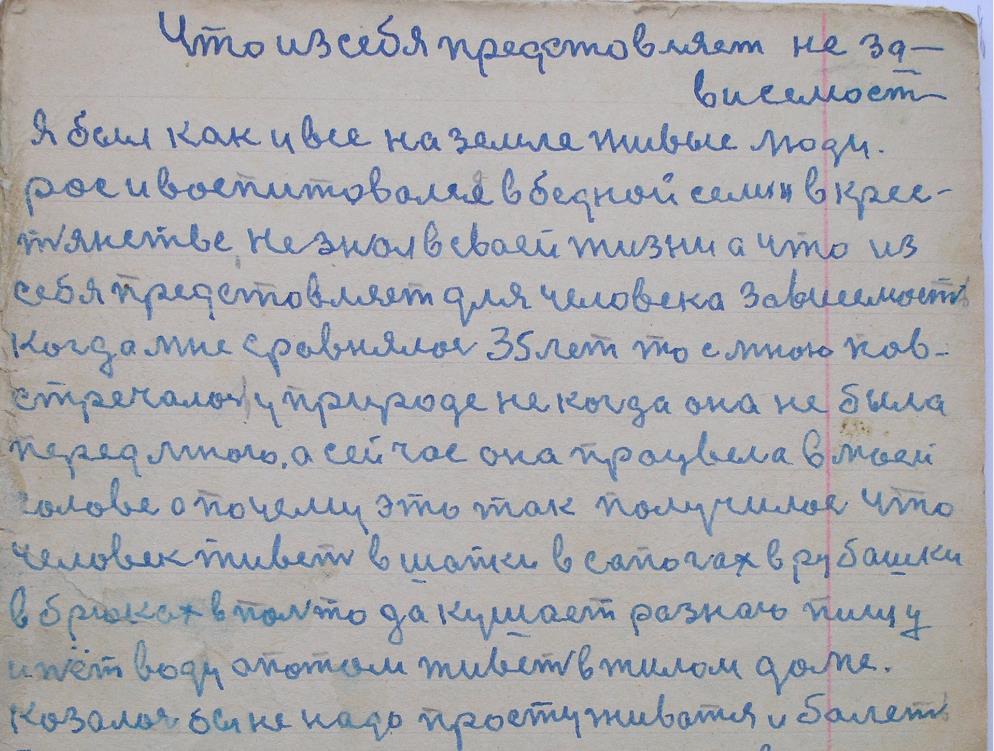 Что из себя предстовляет не за-
висемост
Я был как и все на земле живые люди.
рос и воспитовался в бедной семьи в крес-
тянстве не знал в сваей жизни а что из
себя предстовляет для человека зависемость
когда мне сровнялос 35 лет то с мною пов-
стречалос у природе не когда она не была
перед мною, а сейчас она процвела в моей
голове а почему это так получилос что
человек живет в шапки в сапогах в рубашки
в брюках в полто да кушает разною пищу
и пёт воду а потом живет в жилом доме.
козалос бы не надо простуживатя и балеть